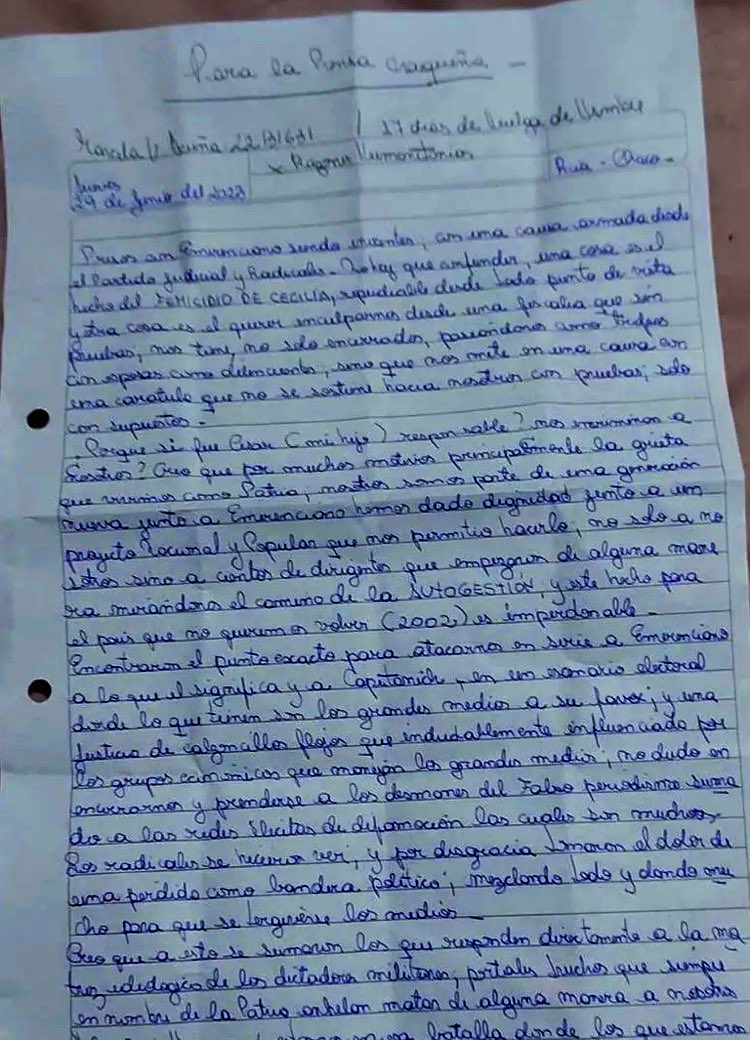 Para la Prensa chaqueña -
Marcela V Acuña 22131631 / 17 dias de huelga de Hambre
x Razones Humanitarias
Jueves
29 de Junio del 2023
Rcia - Chaco -
Presos con Emerenciano siendo inocentes, con una causa armada desde
el Partido Judicial y Radicales - No hay que confundir, una cosa es el
hecho del FEMICIDIO DE CECILIA, repudiable desde todo punto de vista
y otra cosa es el querer inculparnos desde una fiscalia que sin
pruebas, nos tiene, no solo encerrados, paseandonos como trofeos
con esposas como delincuentes, sino que nos mete en una causa con
una caratula que no se sostiene hacia nosotros con pruebas, solo
con supuestos -
¿Porque si fue Cesar (mi hijo) responsable? nos incriminan a
nosotros? Creo que por muchos motivos principalmente la grieta
que vivimos como Patria, nosotros somos parte de una generación
nueva junto a Emerenciano hemos dado dignidad junto a un
proyecto Nacional y Popular que nos permitio hacerlo, no solo a no
sotros sino a cientos de dirigentes que empezaron de alguna mane
ra mirándonos el camino de la AUTOGESTIÓN, y este hecho para
el pais que no queremos volver (2002) es imperdonable -
Encontraron el punto exacto para atacarnos en serie a Emerenciano
a lo que el significa y a Capitanich, en un escenario electoral
donde lo que tienen son los grandes medios a su favor, y una
Justicia de calzoncillos flojos que indudablemente influenciado por
los grupos económicos que manejan los grandes medios, no dudo en
encerrarnos y prenderse a los desmanes del Falso periodismo suma
do a las redes ilicitas de difamación las cuales son muchas -
Los radicales se hicieron ver, y por desgracia tomaron el dolor de
una perdida como bandera politica, mezclando todo y dando mu
cho para que se tergiverse los medios -
Creo que a esto se sumaron los que responden directamente a la ma
triz ideologica de los dictadores militares, portales truchos que siempre
en nombre de la Patria anhelan matar de alguna manera a nosotros
en una batalla donde los que estamos